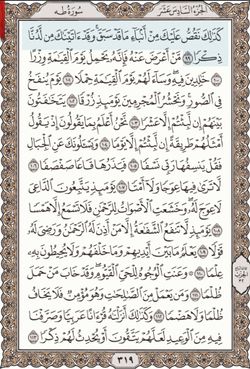 الجزء السادس عشر
سورة طه
كَذَٰلِكَ نَقُصُّ عَلَيْكَ مِنْ أَنۢبَآءِ مَا قَدْ سَبَقَ ۚ وَقَدْ ءَاتَيْنَٰكَ مِن لَّدُنَّا
ذِكْرًا ٩٩ مَّنْ أَعْرَضَ عَنْهُ فَإِنَّهُۥ يَحْمِلُ يَوْمَ ٱلْقِيَٰمَةِ وِزْرًا
١٠٠ خَٰلِدِينَ فِيهِ ۖ وَسَآءَ لَهُمْ يَوْمَ ٱلْقِيَٰمَةِ حِمْلًا ١٠١ يَوْمَ يُنفَخُ
فِى ٱلصُّورِ ۚ وَنَحْشُرُ ٱلْمُجْرِمِينَ يَوْمَئِذٍ زُرْقًا ١٠٢ يَتَخَٰفَتُونَ
بَيْنَهُمْ إِن لَّبِثْتُمْ إِلَّا عَشْرًا ١٠٣ نَّحْنُ أَعْلَمُ بِمَا يَقُولُونَ إِذْ يَقُولُ
أَمْثَلُهُمْ طَرِيقَةً إِن لَّبِثْتُمْ إِلَّا يَوْمًا ١٠٤ وَيَسْـَٔلُونَكَ عَنِ ٱلْجِبَالِ
فَقُلْ يَنسِفُهَا رَبِّى نَسْفًا ١٠٥ فَيَذَرُهَا قَاعًا صَفْصَفًا ١٠٦
لَّا تَرَىٰ فِيهَا عِوَجًا وَلَآ أَمْتًا ١٠٧ يَوْمَئِذٍ يَتَّبِعُونَ ٱلدَّاعِىَ
لَا عِوَجَ لَهُۥ ۖ وَخَشَعَتِ ٱلْأَصْوَاتُ لِلرَّحْمَٰنِ فَلَا تَسْمَعُ إِلَّا هَمْسًا
١٠٨ يَوْمَئِذٍ لَّا تَنفَعُ ٱلشَّفَٰعَةُ إِلَّا مَنْ أَذِنَ لَهُ ٱلرَّحْمَٰنُ وَرَضِىَ لَهُۥ
قَوْلًا ١٠٩ يَعْلَمُ مَا بَيْنَ أَيْدِيهِمْ وَمَا خَلْفَهُمْ وَلَا يُحِيطُونَ بِهِۦ
عِلْمًا ١١٠ وَعَنَتِ ٱلْوُجُوهُ لِلْحَىِّ ٱلْقَيُّومِ ۖ وَقَدْ خَابَ مَنْ حَمَلَ
ظُلْمًا ١١١ وَمَن يَعْمَلْ مِنَ ٱلصَّٰلِحَٰتِ وَهُوَ مُؤْمِنٌ فَلَا يَخَافُ
ظُلْمًا وَلَا هَضْمًا ١١٢ وَكَذَٰلِكَ أَنزَلْنَٰهُ قُرْءَانًا عَرَبِيًّا وَصَرَّفْنَا
فِيهِ مِنَ ٱلْوَعِيدِ لَعَلَّهُمْ يَتَّقُونَ أَوْ يُحْدِثُ لَهُمْ ذِكْرًا ١١٣
٣١٩